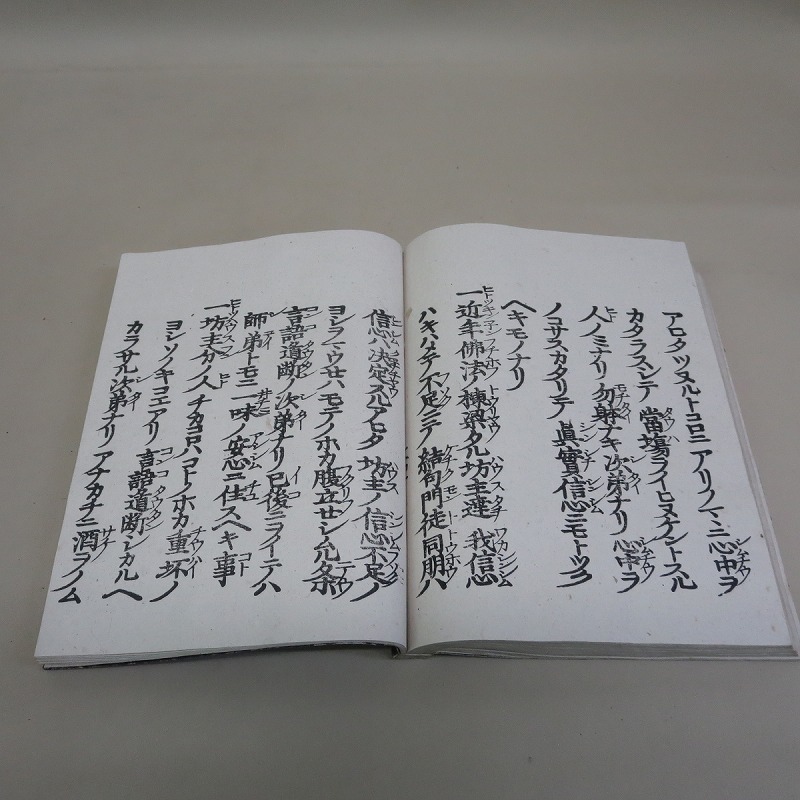 アヒタツヌルトコロニ アリノママニ心中ヲ
カタラスシテ 當塲ヲイヒヌケントスル
人ノミナリ 勿躰ナキ次第ナリ 心中ヲ
ノコサスカタリテ 眞實信心ニモトツク
ヘキモノナリ
一近年佛法ノ棟梁タル坊主達 我信心
ハキハメテ不足ニテ 結句門徒同朋ハ
信心ハ決定スルアヒタ 坊主ノ信心不足ノ
ヨシヲマウセハ モテノホカ腹立セシムル條
言語道斷ノ次第ナリ 已後ニヲイテハ
師弟トモニ一味ノ安心ニ住スヘキ事
一坊主分ノ人チカコロハコトノホカ重坏ノ
ヨシソノキコエアリ 言語道斷シカルヘ
カラサル次第ナリ アナカチニ酒ヲノム